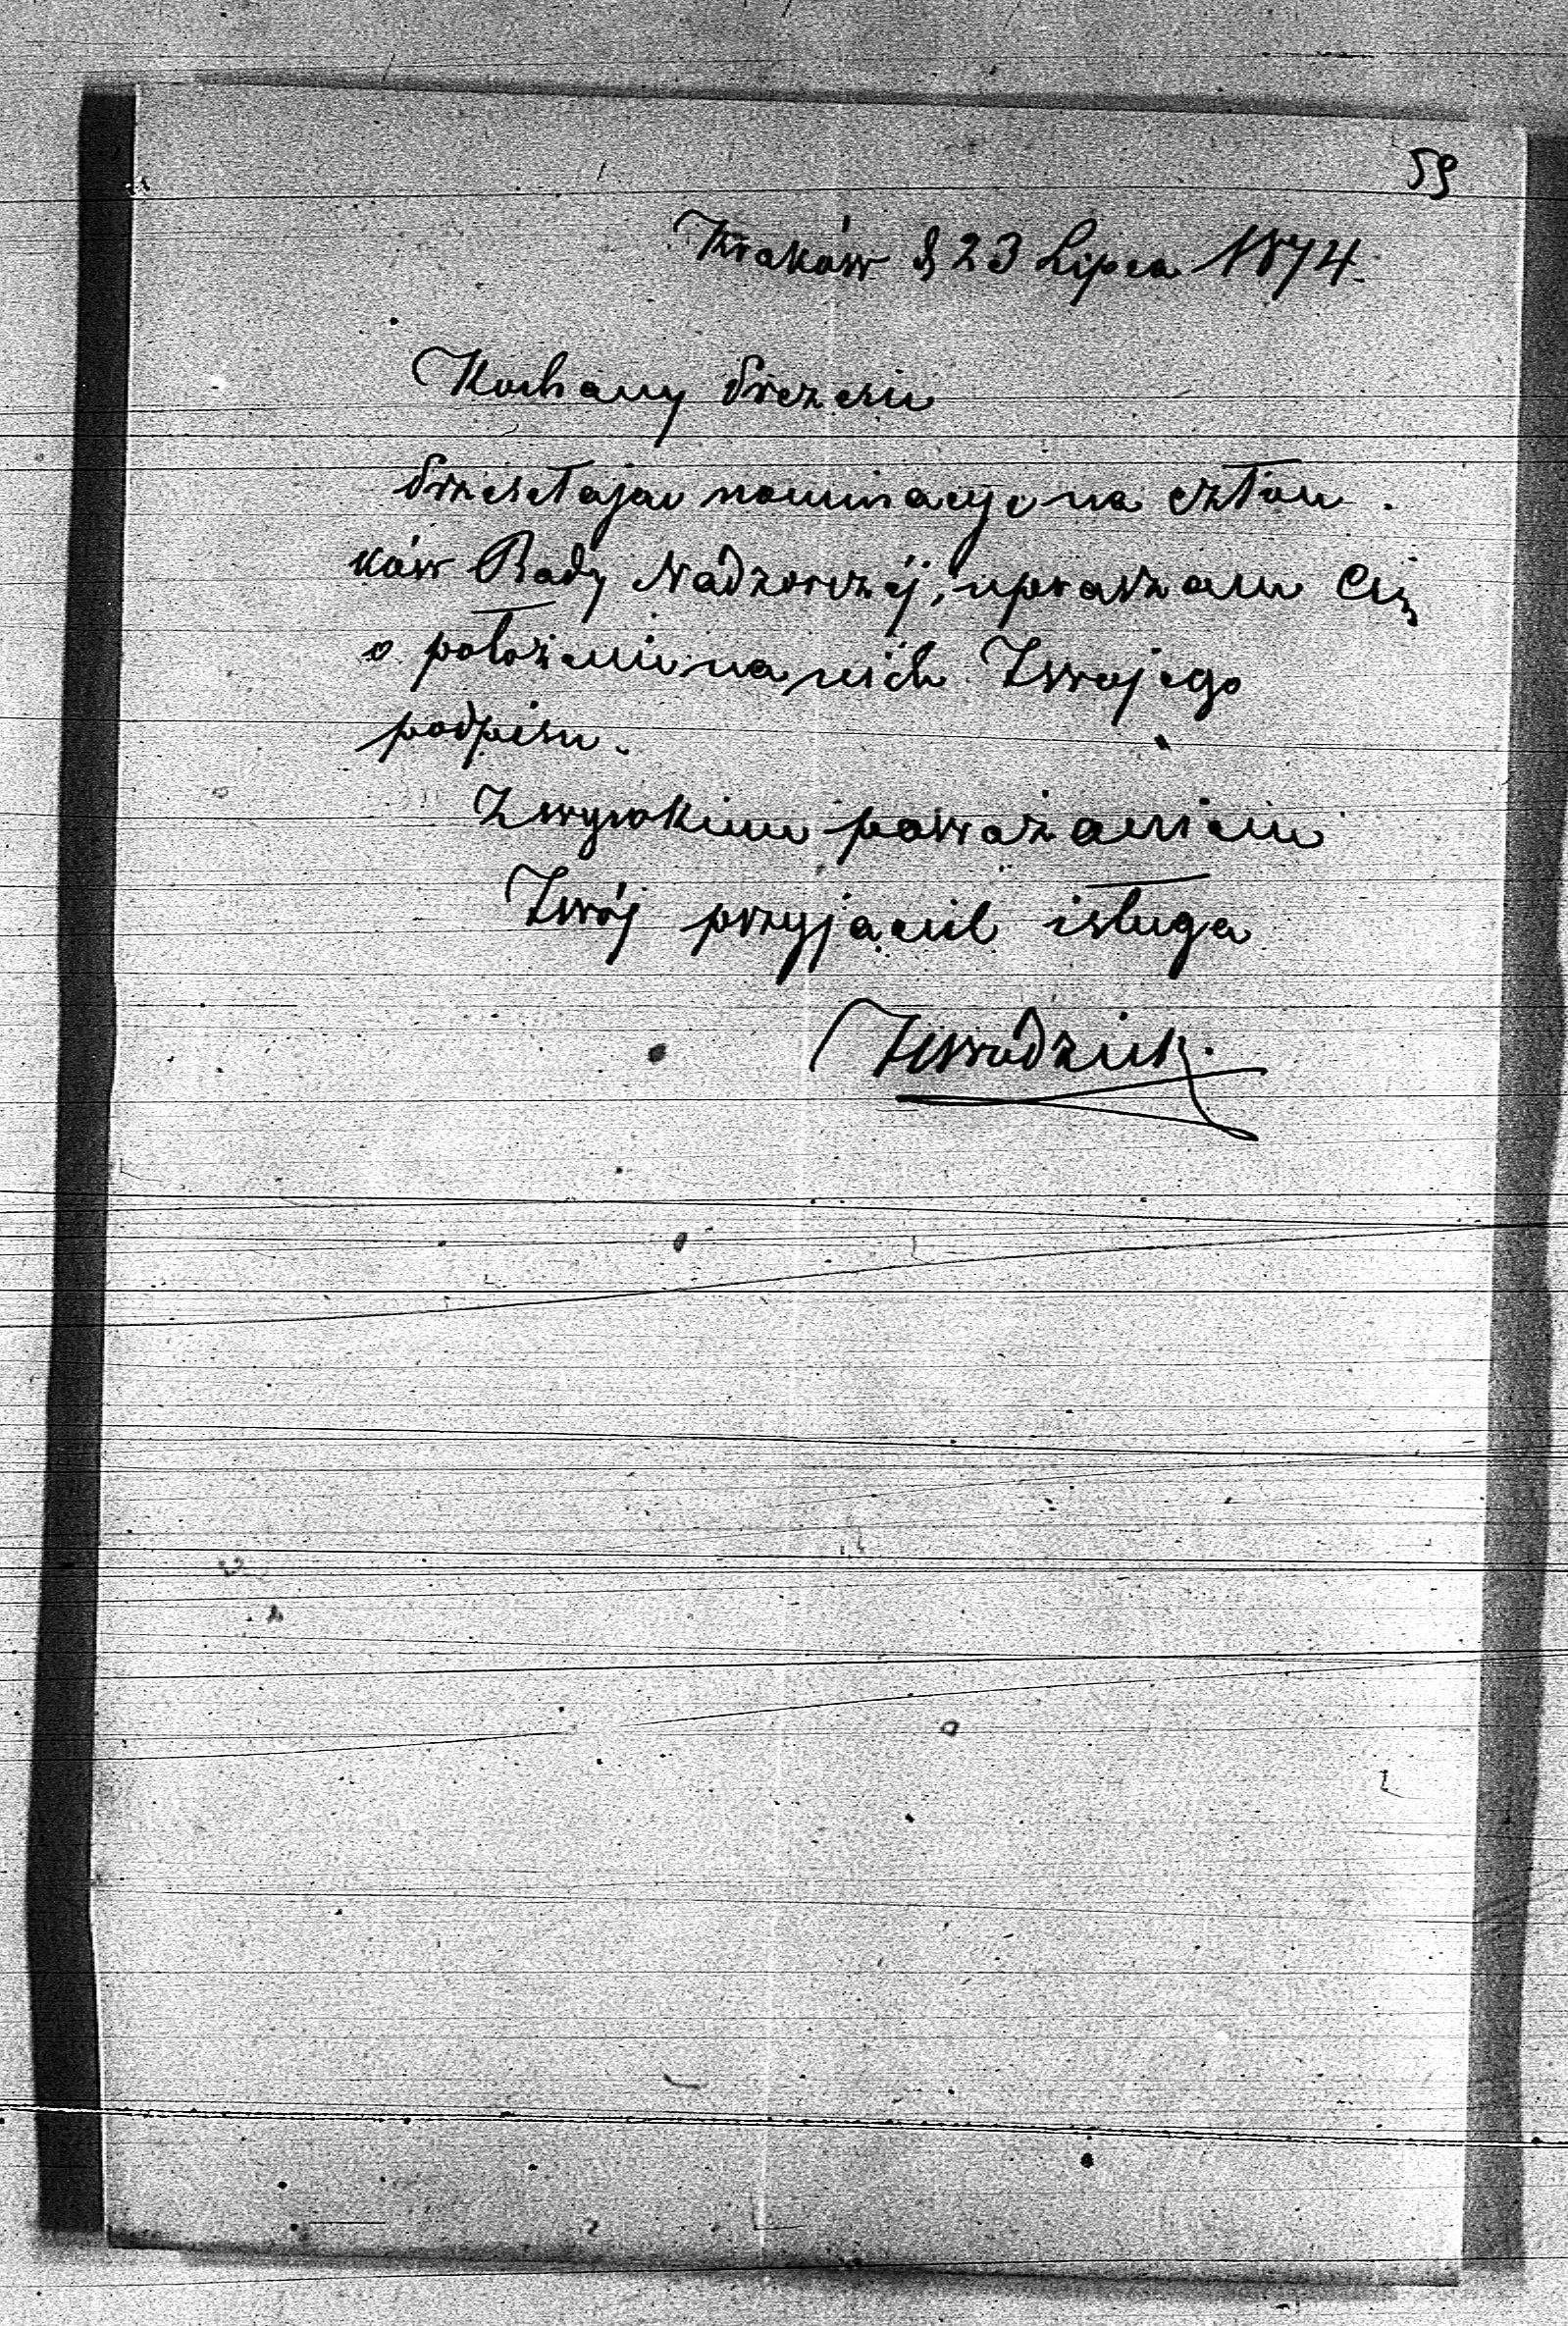 59
Kraków d 23 Lipca 1874.
Kochany Prezesie
Przesełając nominacye na człon-
ków Rady Nadzorczéj, upraszam Cię
o położenie na nich Twojego
podpisu.
Z wysokiem poważaniem
Twój przyjaciel i sługa
HWodzicki